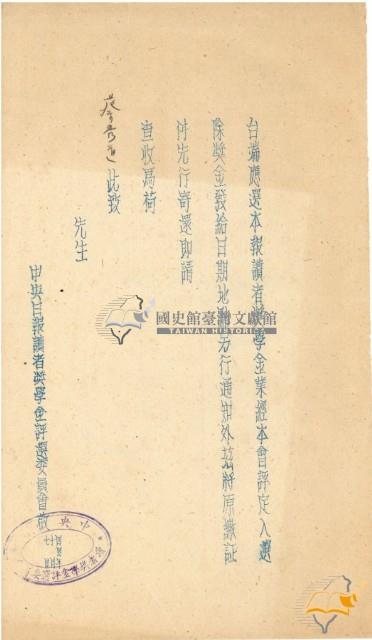 台端應選本報讀者獎學金業經本會評定入選
除獎金發給日期地點另行通知外茲將原繳証
件先行寄還即請
查收為荷
此致
先生
中央日報讀者獎學金評選委員會啟
國史館臺灣文獻館
TAIWAN HISTORICA